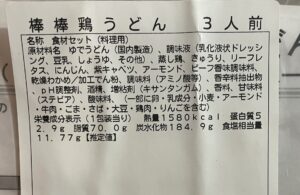 棒棒鶏うどん 3人前
名称 食材セット(料理用)
原材料名 ゆでうどん(国内製造)、調味液(乳化液状ドレッシ
ング、豆乳、しょうゆ、その他)、蒸し鶏、きゅうり、リーフレ
タス、にんじん、紫キャベツ、アーモンド、ビーフ香味調味料、
乾燥わかめ/加工でん粉、調味料(アミノ酸等)、香辛料抽出物
、pH調整剤、酒精、増粘剤(キサンタンガム)、香料、甘味料
(ステビア)、酸味料、(一部に卵・乳成分・小麦・アーモンド
・牛肉・ごま・さば・大豆・鶏肉・りんごを含む)
栄養成分表示(1包装当り) 熱量1580kcal 蛋白質5
2.9g 脂質70.0g 炭水化物184.9g 食塩相当量
11.77g【推定値】